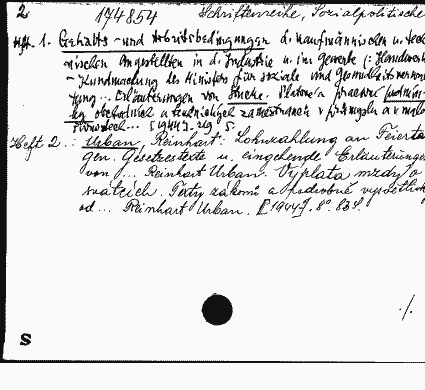 2 174854 Schriftenreihe, Sozialpolitische
Heft 1. Gehalts- und Arbeitsbedingungen d. kaufmännischen u. tech
nischen Angestellten in d. Industrie u. im Gewerbe (: Handwerk
- Kundmachung des Ministers für soziale und Gesundheitsverwal
tung... Erläuterungen von Fuchs. Platové a pracovní podmín-
ky obchodních a technických zaměstnanců v průmyslu a v malo
... [1944]. 29 S.
Heft 2.: Urban, Reinhart: Lohnzahlung an Feierta
gen. Gesetzestexte u. eingehende Erläuterungen
von ... Reinhart Urban. Výplata mzdy o
svátcích. Texty zákonů a podrobné vysvětlivky
od ... Reinhart Urban. [1944]. 8°. 83 S.
./.
S